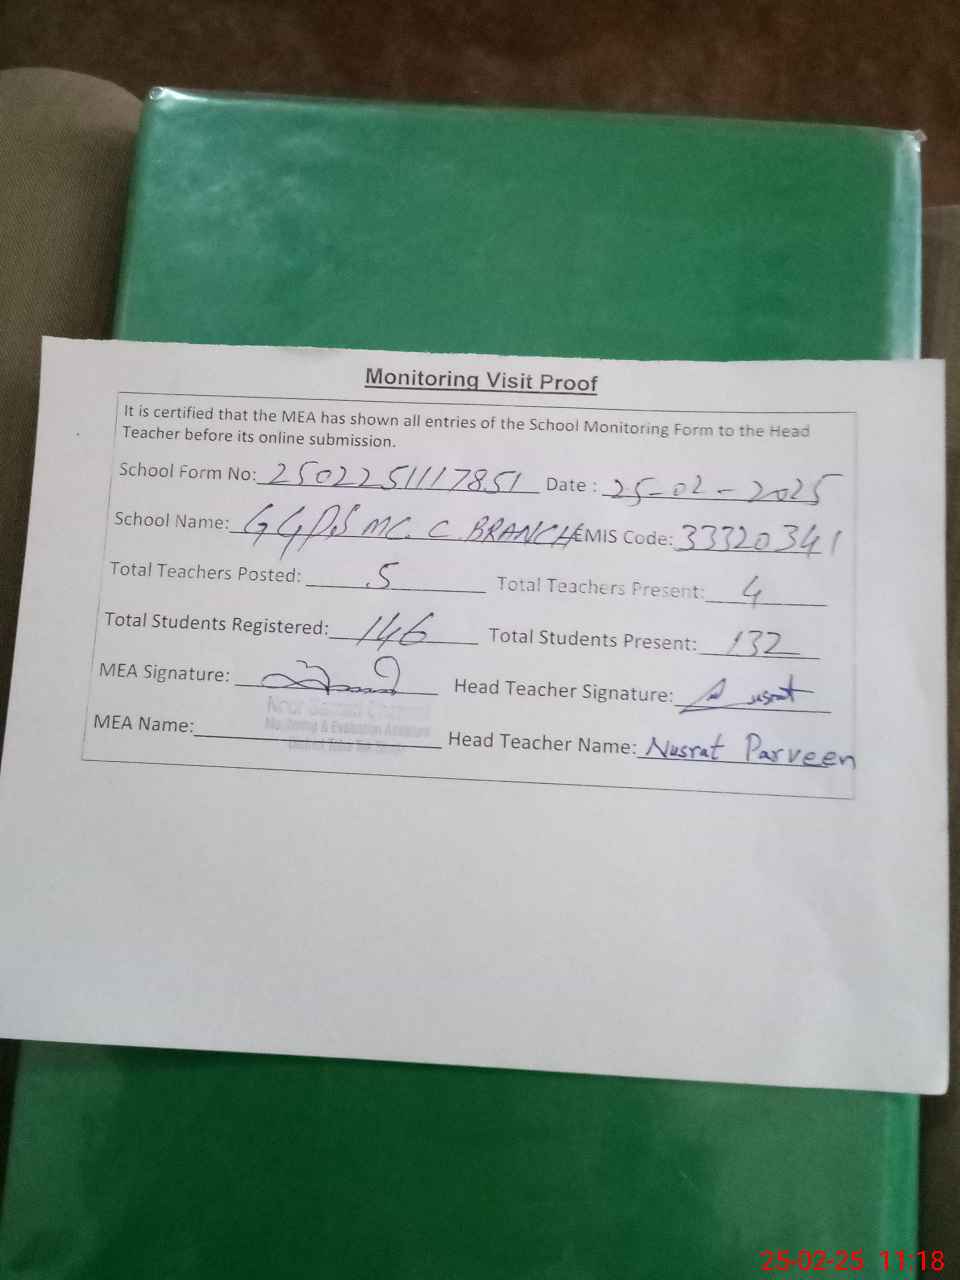 Monitoring Visit Proof
It is certified that the MEA has shown all entries of the School Monitoring Form to the Head
Teacher before its online submission.
School Form No: 2502251117851 Date : 25-02-2025
School Name: GGPS MC. C. BRANCH EMIS Code: 33320341
Total Teachers Posted: 5 Total Teachers Present: 4
Total Students Registered: 146 Total Students Present: 132
MEA Signature: Head Teacher Signature: Nusrat
Monitoring & Evaluation Assistant
District Toba Tek Singh
MEA Name: Head Teacher Name: Nusrat Parveen
25-02-25 11:18